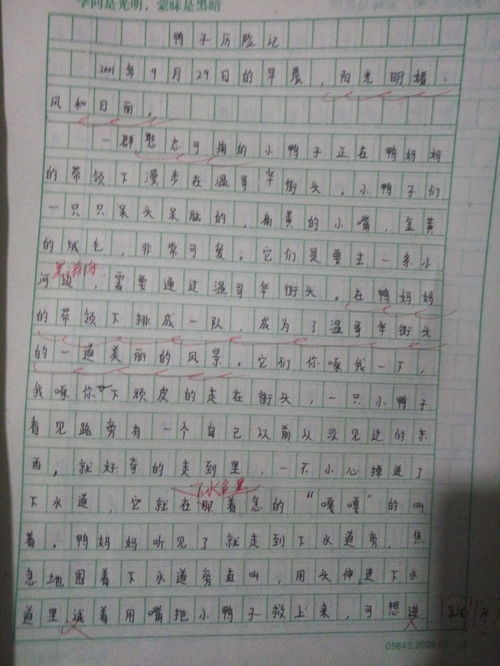 学问是光明，蒙昧是黑暗
鸭子历险记
2001年9月29日的早晨，阳光明媚，
风和日丽。
一群憨态可掬的小鸭子正在鸭妈妈
的带领下漫步在温哥华街头，小鸭子们
一只只呆头呆脑的，扁黄的小嘴，金黄
的绒毛，非常可爱。它们是要去一条小
河边，需要通过温哥华街头。在鸭妈妈
的带领下排成一队，成为了温哥华街头
的一道美丽的风景。它们你啄我一下，
我啄你一下顽皮的走在街头，一只小鸭子
看见跑旁有一个自己以前从没见过的东
西，就好奇的走到里，一不小心掉进了
下水道里
下水道，它就在那着急的“嘎嘎”的叫
着。鸭妈妈听见了就走到下水道旁，焦
急地围着下水道旁直叫，用头伸进下水
道里试着用嘴把小鸭子救上来，可想进
05643·2009.07